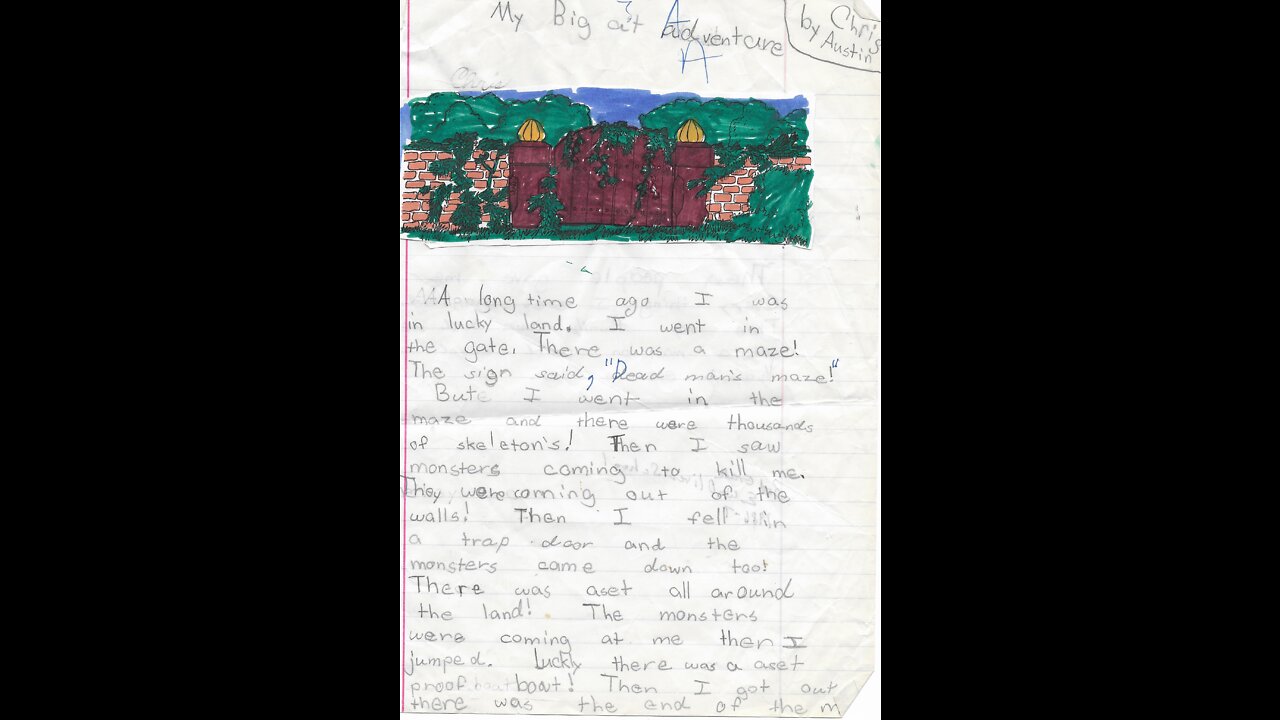 My Big at Adventure
by Chris
Austin
Chris
A long time ago I was
in lucky land. I went in
the gate. There was a maze!
The sign said, "Dead man's maze!"
But I went in the
maze and there were thousands
of skeleton's! Then I saw
monsters coming to kill me.
They were coming out of the
walls! Then I fell in
a trap door and the
monsters came down too!
There was aset all around
the land! The monsters
were coming at me then I
jumped. Lucky there was a aset
proof boat! Then I got out
there was the end of the m